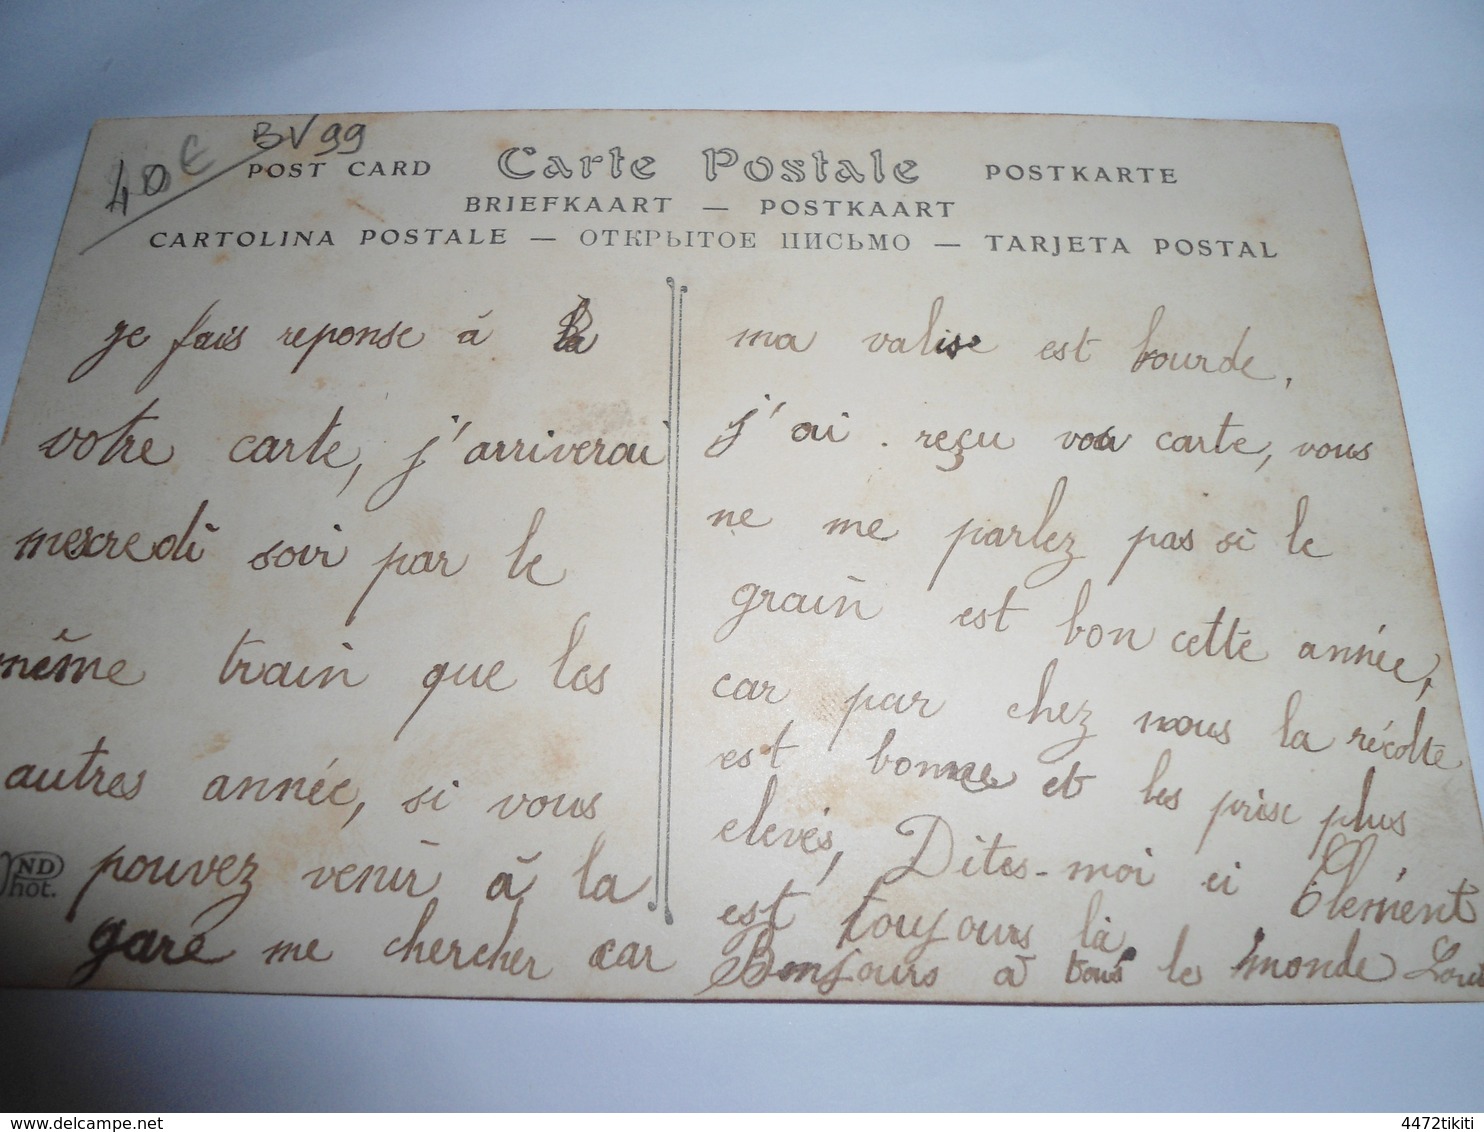 40€ BV99
POST CARD Carte Postale POSTKARTE
BRIEFKAART — POSTKAART
CARTOLINA POSTALE — ОТКРЫТОЕ ПИСЬМО — TARJETA POSTAL
je fais reponse à la
votre carte, j'arriverai
mercredi soir par le
même train que les
autres année, si vous
pouvez venir à la
gare me chercher car
ma valise est lourde,
j'ai reçu vou carte, vous
ne me parlez pas si le
grain est bon cette année,
car par chez nous la récolte
est bonne et les prise plus
elevés, Dites-moi ci Clément
est toujours là
Bonjours à tous le monde
ND
Phot.
4472tikiti